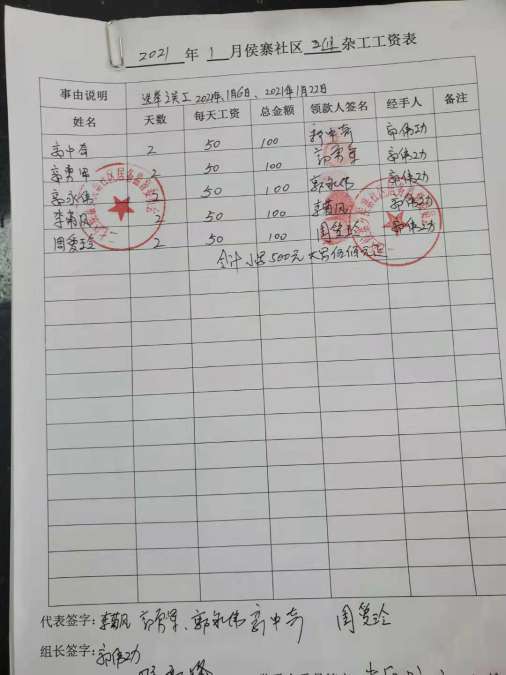 2021 年 1 月侯寨社区 杂工工资表
事由说明 选举误工 2021年1月6日、2021年1月22日
姓名 天数 每天工资 总金额 领款人签名 经手人 备注
高中奇 2 50 100 郭伟功
2 50 100 郭伟功
郭永伟 2 50 100 郭永伟 郭伟功
李菊凤 2 50 100 李菊凤 郭伟功
周爱玲 2 50 100 周爱玲 郭伟功
合计小写500元 大写伍佰元整
代表签字: 李菊凤 郭永伟 高中奇 周爱玲
组长签字: 郭伟功